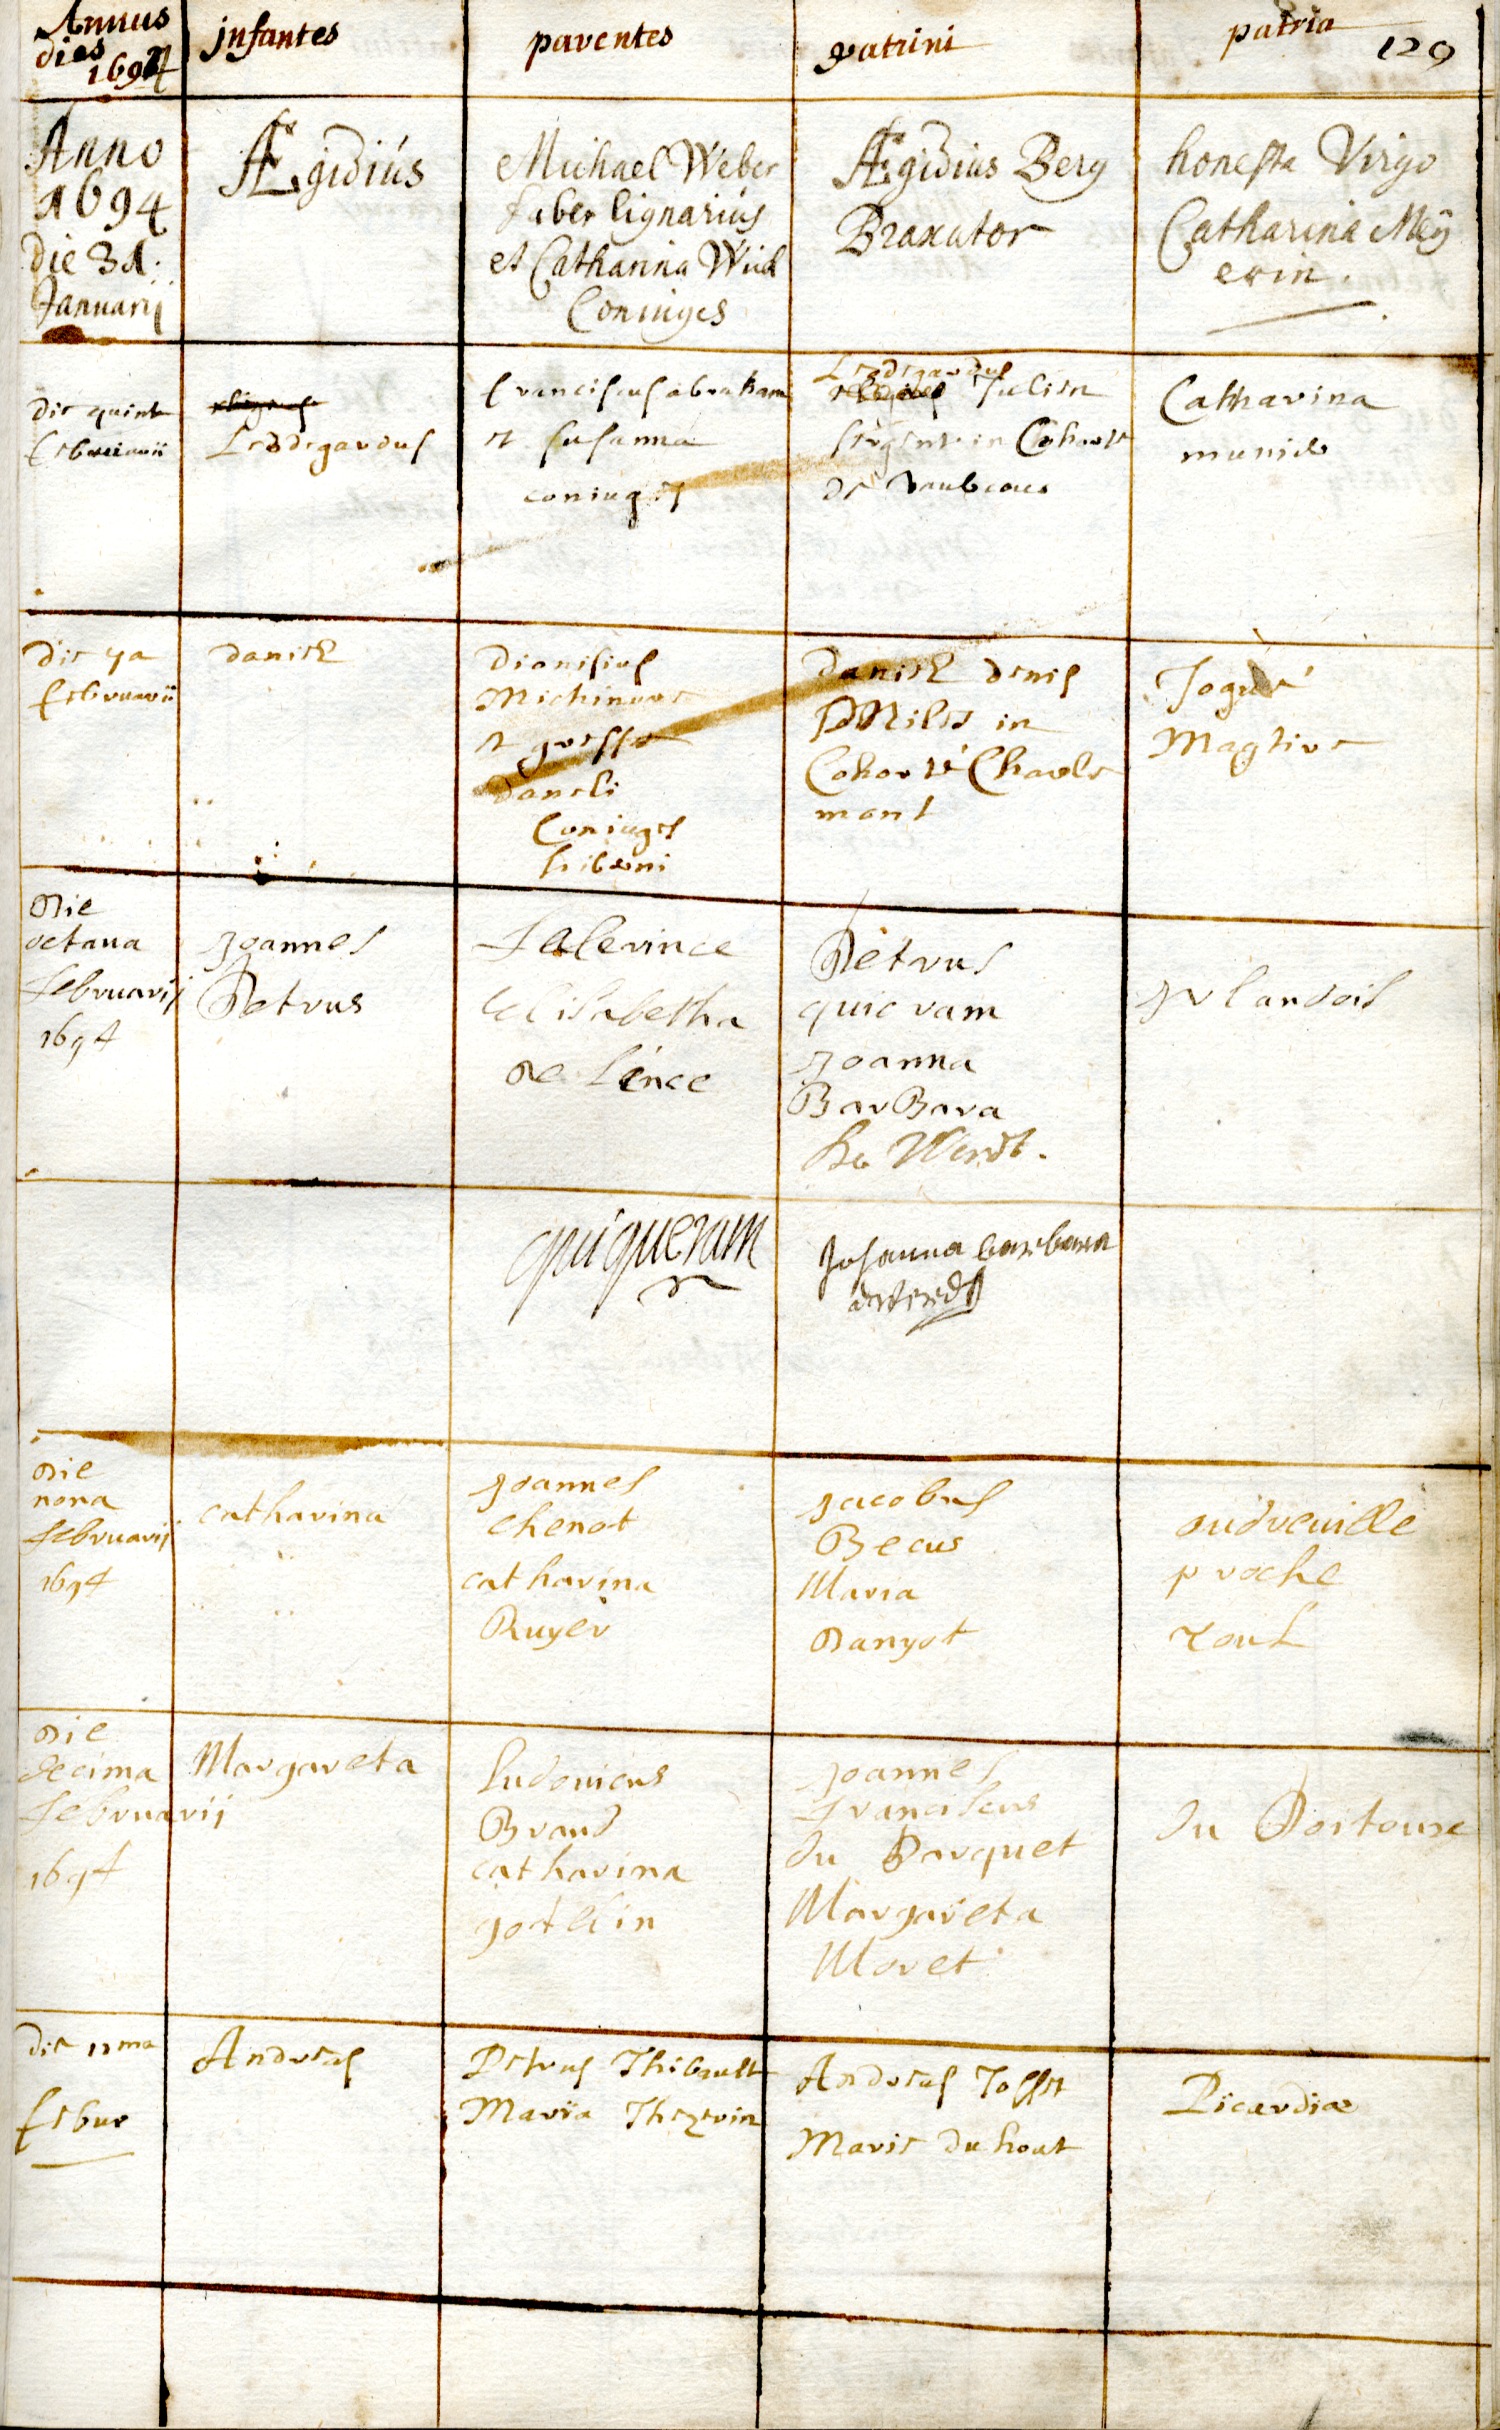 Annus dies 1694
jnfantes
parentes
patrini
patria
129
Anno
1694
Die 31.
Januarij
Ægidiús
Michael Weber
faber lignariús
et Catharina
Coniuges
Ægidius Berg
Braxator
honesta Virgo
Catharina Meÿ
erin.
die quint
februarii
Leodegardus
franciscus abraham
et susanna
coniuges
Leodegardus
Julien
sergente in Cohorte
de
Catharina
munier
die 7a
februarii
daniel
Dionisius
et
daneli
Coniuges
hiberni
daniel denis
Miles in
Cohorte Charle
mont
Die
octaua
februarij
1694
Joannes
Petrus
falerince
Elisabetha
de lince
Petrus
quicram
Joanna
BarBara
Werdt.
jrlandois
quiqueram
Johanna barbara
Die
nona
februarij
1694
catharina
Joannes
chenot
catharina
Ruyer
Jacobus
Becus
Maria
Danyot
oudreuille
proche
Toul
Die
decima
februarij
1694
Margareta
Ludouicus
Braud
catharina
gotelin
Joannes
franciscus
du Parquet
Margareta
Moret
du Poitoux
die 11ma
febur
Andreas
Petrus Thibault
Maria
Andreas
Marie du hout
Picardiæ